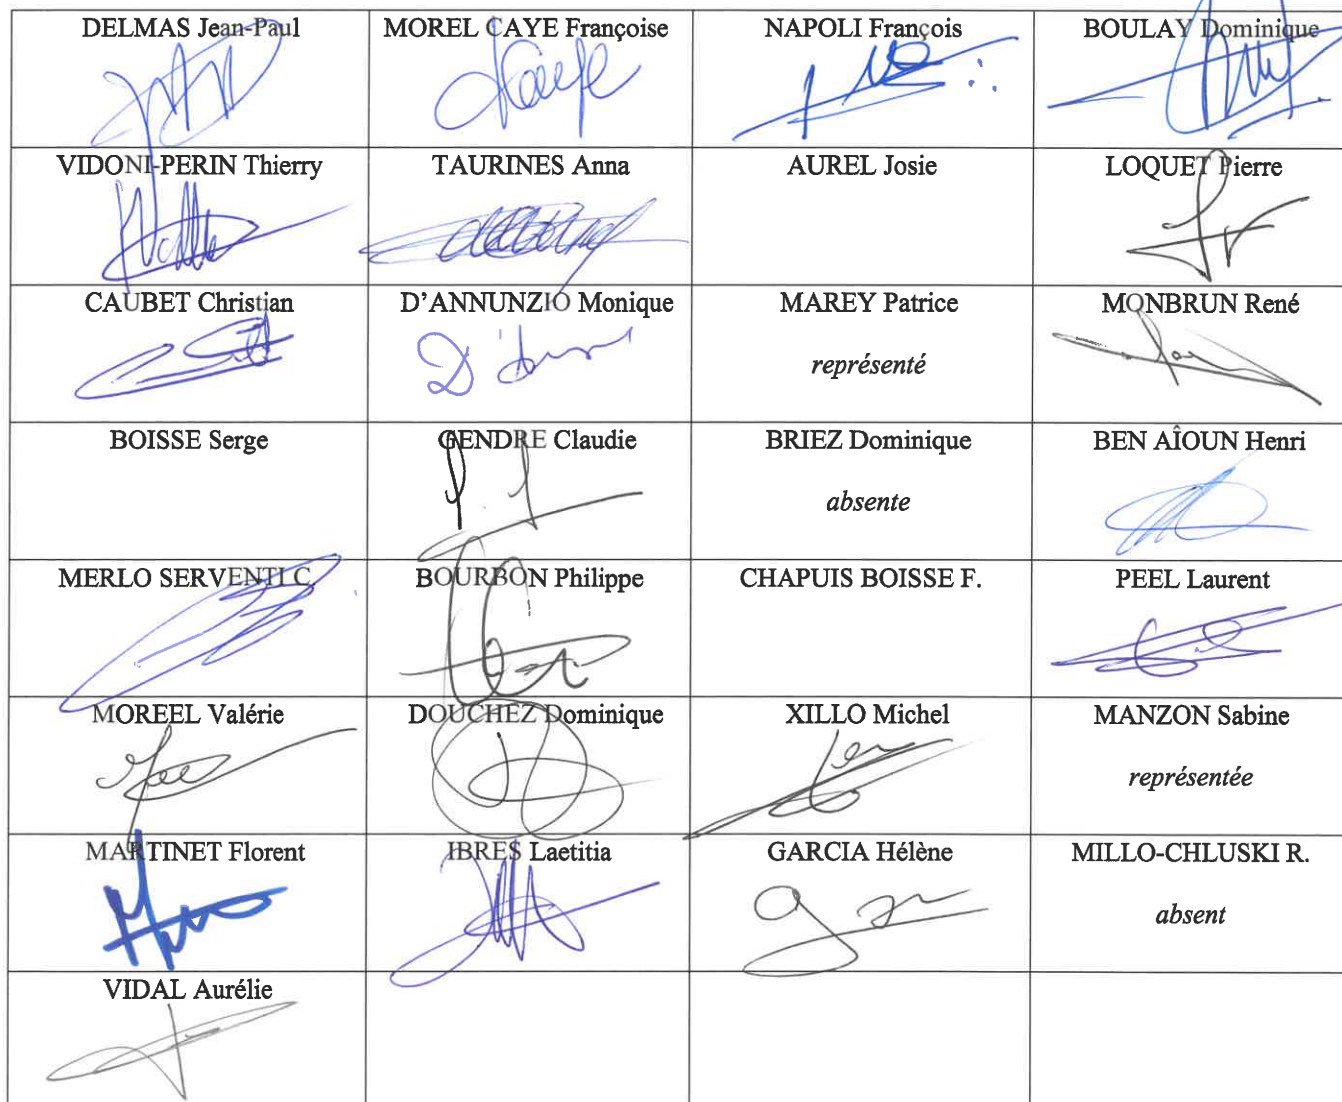 DELMAS Jean-Paul
MOREL CAYE Françoise
NAPOLI François
BOULAY Dominique
VIDONI-PERIN Thierry
TAURINES Anna
AUREL Josie
LOQUET Pierre
CAUBET Christian
D'ANNUNZIO Monique
MAREY Patrice
représenté
MONBRUN René
BOISSE Serge
GENDRE Claudie
BRIEZ Dominique
absente
BEN AÎOUN Henri
MERLO SERVENTI C
BOURBON Philippe
CHAPUIS BOISSE F.
PEEL Laurent
MOREEL Valérie
DOUCHEZ Dominique
XILLO Michel
MANZON Sabine
représentée
MARTINET Florent
IBRES Laetitia
GARCIA Hélène
MILLO-CHLUSKI R.
absent
VIDAL Aurélie